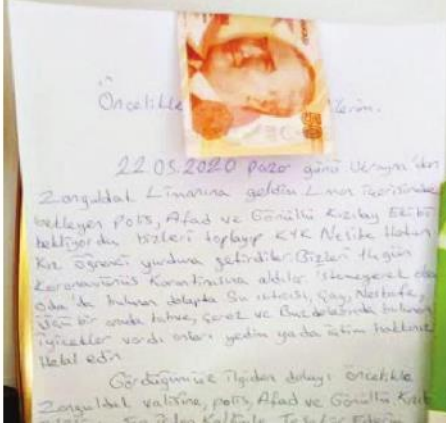 Öncelikle lerim.
22.05.2020 pazar günü Ukrayna'dan
Zonguldak Limanına geldim Liman içerisinde
bekleyen Polis, Afad ve Gönüllü Kızılay Ekibi
bekliyordu bizleri toplayıp KYK Nesibe Hatun
Kız öğrenci yurduna getirdiler. Bizleri 14 gün
Koronavirüs Karantinasına aldılar. istemeyerek
oda'da bulunan dolapta Su ısıtıcısı, Çay, Neskafe,
üçü bir arada kahve, Çerez ve Buzdolabında bulunan
içicekler vardı onları yedim ya da içtim hakkınızı
Helal edin.
Gördüğümüz ilgiden dolayı öncelikle
Zonguldak valisine, polis, Afad ve Gönüllü Kızıl
Teşekkür Ederim